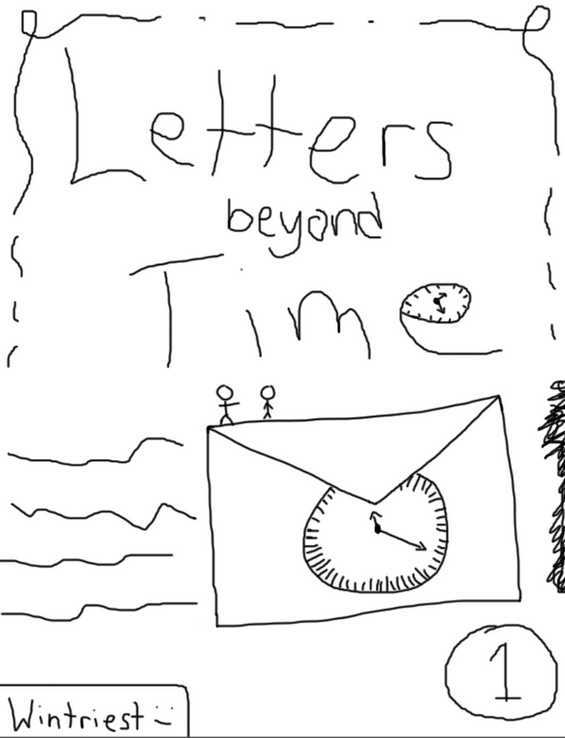 Letters
beyond
Time
1
Wintriest :)